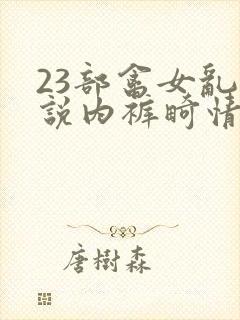 23部畜女乱
説内裤畸情
唐樹森